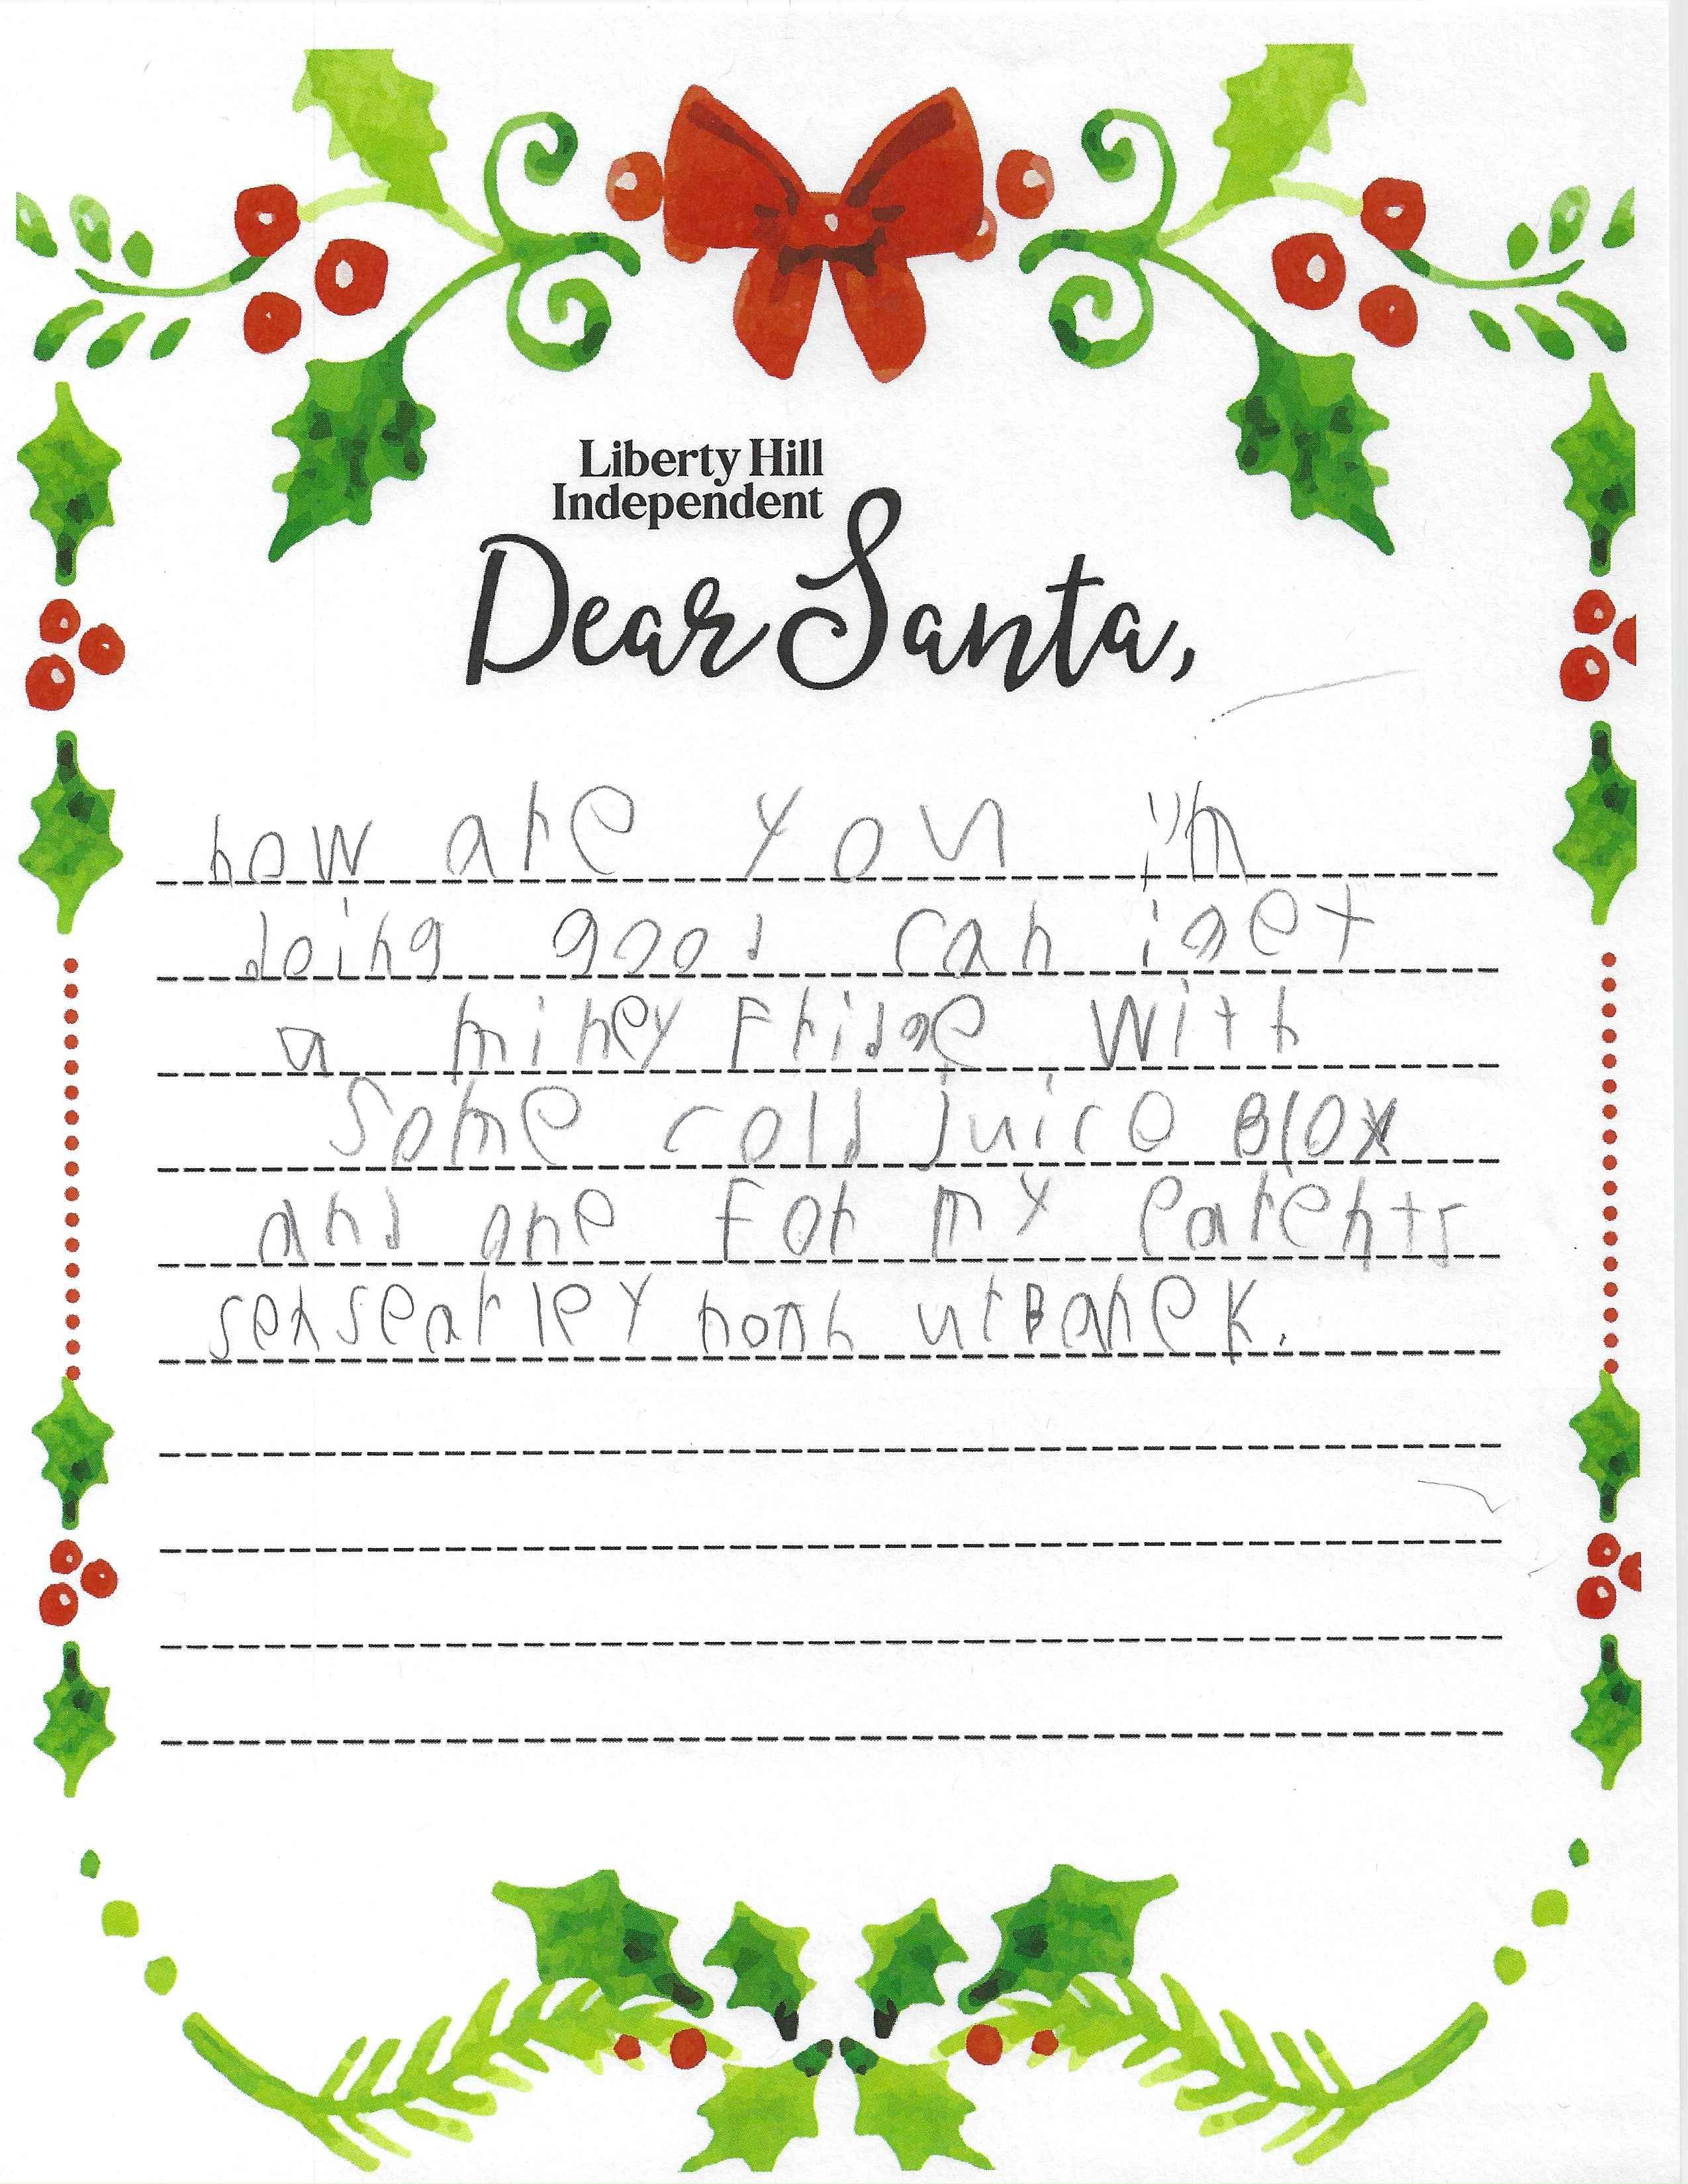 Liberty Hill
Independent
Dear Santa,
how are you i'm
doing good can i get
a miney Fridge with
Some cold juice Blox
and one for my Parents
sensearley urbanek.